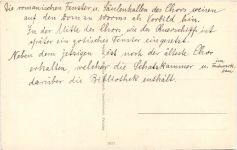 Die romanischen Fenster u. Säulenhallen des Chors weisen
auf den Dom zu Worms als Vorbild hin.
In der Mitte des Chors, wie des Querschiffs ist
später ein gotisches Fenster eingesetzt.
Neben dem jetzigen ist noch der älteste Chor
erhalten, welcher die Schatzkammer u. im
darüber die Bibliothek enthält.